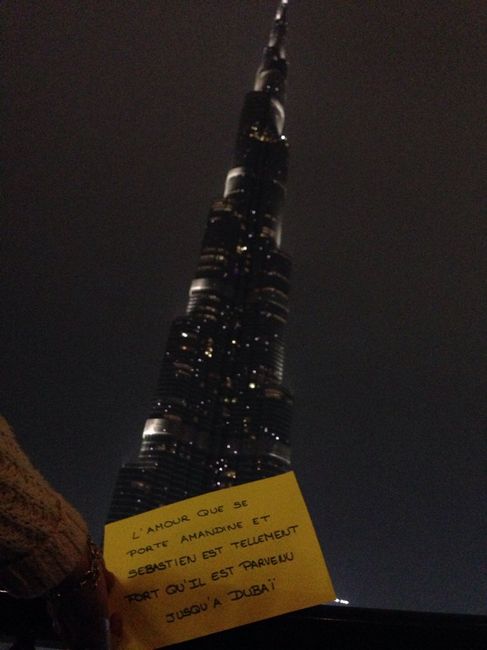 L'AMOUR QUE SE
PORTE AMANDINE ET
SEBASTIEN EST TELLEMENT
FORT QU'IL EST PARVENU
JUSQU'A DUBAÏ